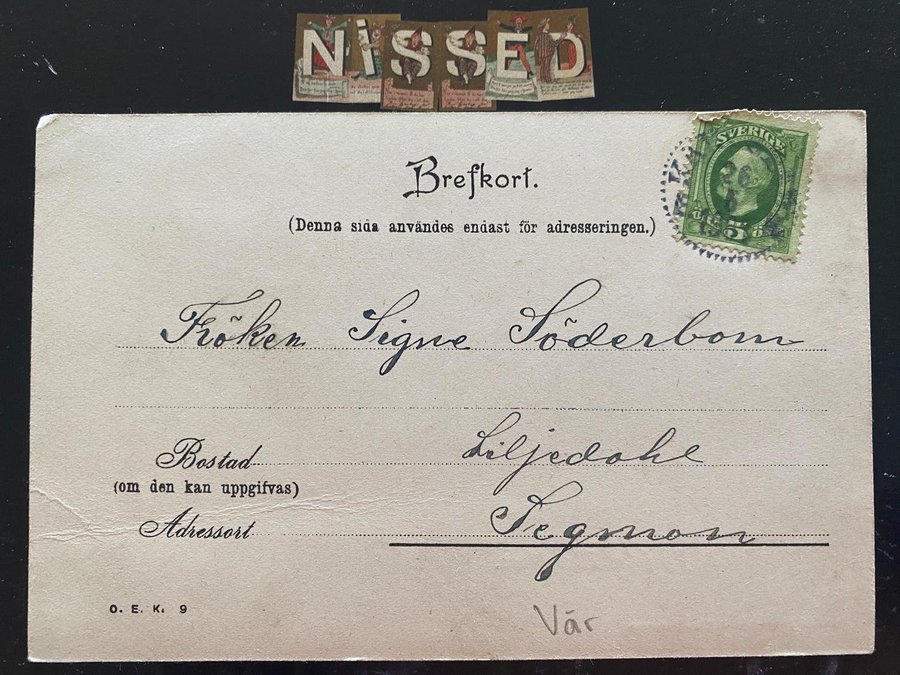 NISSED
Brefkort.
(Denna sida användes endast för adresseringen.)
SVERIGE
5
Fröken Signe Söderbom
Bostad
Liljedahl
(om den kan uppgifvas)
Adressort
Segmon
O. E. K. 9
Vär